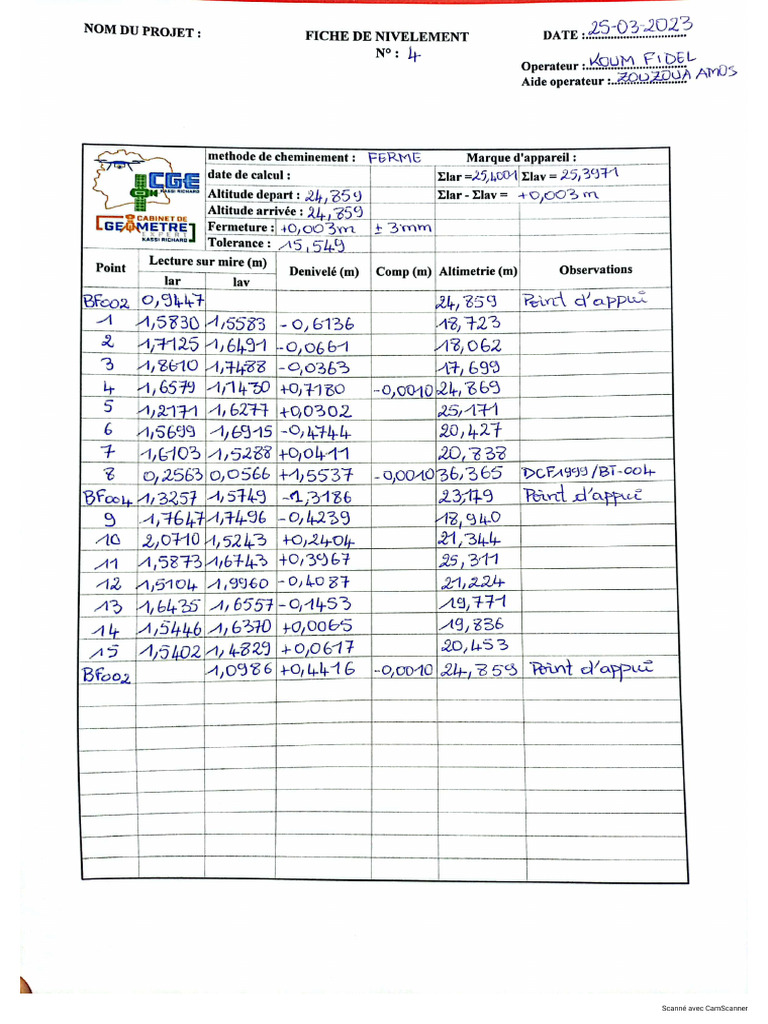 NOM DU PROJET : FICHE DE NIVELEMENT DATE : 25-03-2023
N° : 4
Operateur : KOUM FIDEL
Aide operateur : ZOUZOUA AMOS
methode de cheminement : FERME Marque d'appareil :
date de calcul : Σlar = 25,4001 Σlav = 25,3971
Altitude depart : 24,859 Σlar - Σlav = +0,003 m
Altitude arrivée : 24,859
Fermeture : +0,003m ± 3mm
Tolerance : 15,549
CGE
KASSI RICHARD
CABINET DE
GEOMETRE
EXPERT
KASSI RICHARD
Point Lecture sur mire (m) Denivelé (m) Comp (m) Altimetrie (m) Observations
lar lav
BF002 0,9447 24,859 Point d'appui
1 1,5830 1,5583 -0,6136 18,723
2 1,7125 1,6491 -0,0661 18,062
3 1,8610 1,7488 -0,0363 17,699
4 1,6579 1,1430 +0,7180 -0,0010 24,869
5 1,2171 1,6277 +0,0302 25,171
6 1,5699 1,6915 -0,4744 20,427
7 1,6103 1,5288 +0,0411 20,838
8 0,2563 0,0566 +1,5537 -0,0010 36,365 DCF1999/BT-004
BF004 1,3257 1,5749 -1,3186 23,179 Point d'appui
9 1,7647 1,7496 -0,4239 18,940
10 2,0710 1,5243 +0,2404 21,344
11 1,5873 1,6743 +0,3967 25,311
12 1,5104 1,9960 -0,4087 21,224
13 1,6435 1,6557 -0,1453 19,771
14 1,5446 1,6370 +0,0065 19,836
15 1,5402 1,4829 +0,0617 20,453
BF002 1,0986 +0,4416 -0,0010 24,859 Point d'appui
Scanné avec CamScanner